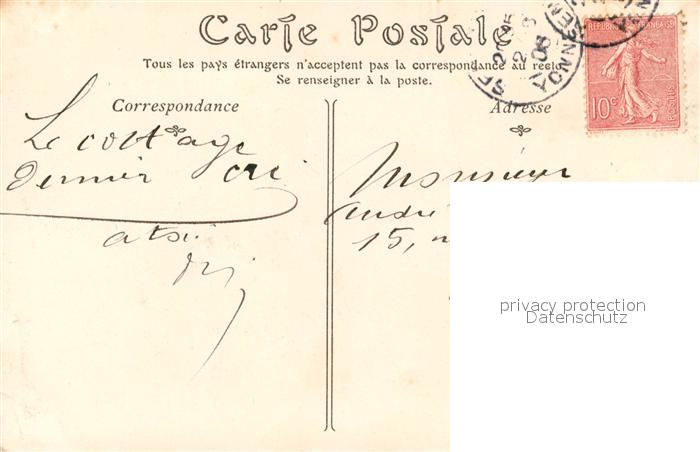 Carte Postale
Tous les pays étrangers n'acceptent pas la correspondance au recto
Se renseigner à la poste.
Correspondance
Le cottage
dernier cri.
Adresse
Monsieur
André
15,
RÉPUBLIQUE FRANÇAISE
10c
POSTES
YONNE
privacy protection
Datenschutz